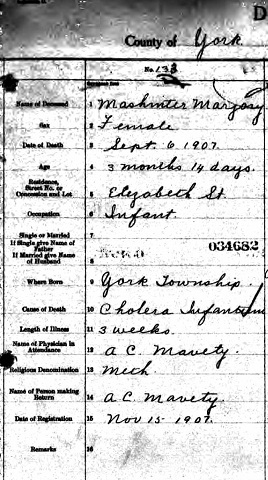 D
County of York
No. 133
Name of Deceased 1 Mashinter Margory
Sex 2 Female
Date of Death 3 Sept. 6 1907.
Age 4 3 months 14 days.
Residence,
Street No. or
Concession and Lot 5 Elezabeth St.
Occupation 6 Infant.
Single or Married 7
If Single give Name of
Father
If Married give Name
of Husband 8
034682
Where Born 9 York Township.
Cause of Death 10 Cholera Infantum
Length of Illness 11 3 weeks.
Name of Physician in
Attendance 12 A C. Mavety.
Religious Denomination 13 Meth.
Name of Person making
Return 14 A C. Mavety.
Date of Registration 15 Nov 15 1907.
Remarks 16